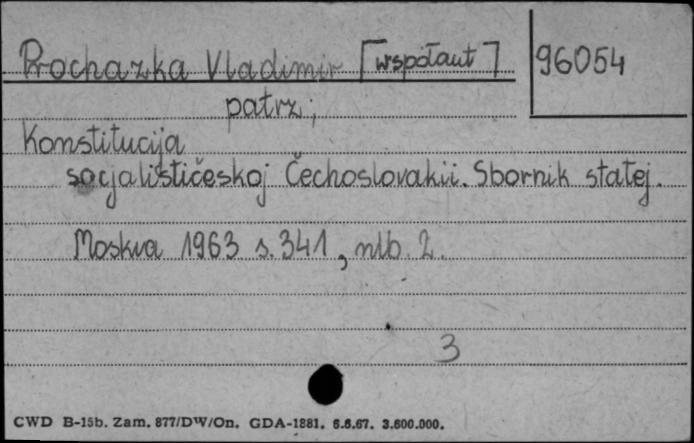 Prochazka Vladimir [współaut]
96054
patrz;
Konstitucija
socjalističeskoj Čechoslovakii. Sbornik statej.
Moskva 1963 s. 341, nlb. 2.
3
CWD B-15b. Zam. 877/DW/On. GDA-1881. 6.6.67. 3.600.000.